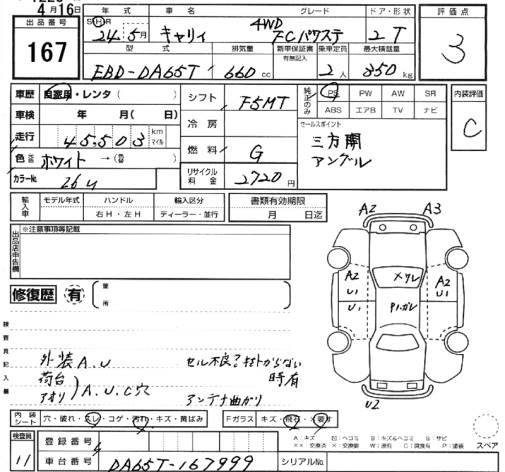 4月16日
出品番号
167
年式 車名 グレード ドア・形状
24年5月 キャリィ 4WD FCパワステ 2T
型式 排気量 新車保証書 有無記入 乗車定員 最大積載量
EBD-DA65T 660cc 2人 350kg
評価点
3
車歴 自家用・レンタ( )
車検 年 月( 日)
走行 45,503 km マイル
色 ホワイト →( )
カラーNo. 26U
シフト F5MT
冷房
燃料 G
リサイクル料金 2720円
純正のみ PS PW AW SR
ABS エアB TV ナビ
セールスポイント
三方開
アングル
内装評価
C
輸入車 モデル年式 ハンドル 輸入区分
右H・左H ディーラー・並行
書類有効期限
月 日迄
出品店申告欄
※注意事項等記載
修復歴 有
箇所
検査員記入欄
外装A.U セル不良?オトからない
荷台 時有
アオリ A.U.C穴
アンテナ曲がり
A2 A3
A2 U1 U1 メクレ Pハガレ A2 U1
U2
内装シート 穴・破れ・スレ・コゲ・汚れ・キズ・黄ばみ
Fガラス キズ・飛石・要す
検査員
11
登録番号
車台番号 DA65T-167999
シリアルNo.
A:キズ U:ヘコミ B:キズ&ヘコミ S:サビ
XX:交換済 X:交換要 W:波有 C:腐食有 P:塗装
スペア